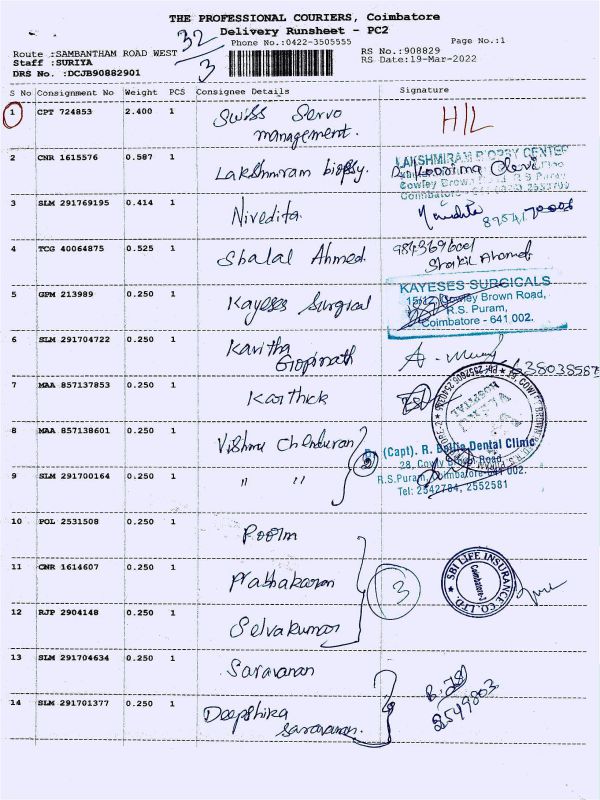 THE PROFESSIONAL COURIERS, Coimbatore
Delivery Runsheet - PC2
32/3
Phone No.:0422-3505555
Page No.:1
Route :SAMBANTHAM ROAD WEST
RS No.:908829
Staff :SURIYA
RS Date:19-Mar-2022
DRS No. :DCJB90882901
S No Consignment No Weight PCS Consignee Details Signature
1 CPT 724853 2.400 1 Swiss Servo management. H/L
2 CNR 1615576 0.587 1 Lakshmiram biopsy.
LAKSHMIRAM BIOPSY CENTER
Cowley Brown R.S Puram
Coimbatore
3 SLM 291769195 0.414 1 Nivedita.
4 TCG 40064875 0.525 1 Shalal Ahmed.
Shakil Ahamed
5 GPM 213989 0.250 1 Kayeses Surgical
KAYESES SURGICALS
15/12, Cowley Brown Road,
R.S. Puram,
Coimbatore - 641 002.
6 SLM 291704722 0.250 1 Kavitha Gopinath
7 MAA 857137853 0.250 1 Karthick
8 MAA 857138601 0.250 1 Vishnu Chenduran
2
(Capt). R. Dental Clinic
28, Cowly Brown Road,
R.S.Puram, Coimbatore-641 002.
Tel: 2542784, 2552581
9 SLM 291700164 0.250 1 " "
10 POL 2531508 0.250 1 Poorni
11 CNR 1614607 0.250 1 Prabhakaran
3
SBI LIFE INSURANCE CO. LTD.
Coimbatore-2
12 RJP 2904148 0.250 1 Selvakumar
13 SLM 291704634 0.250 1 Saravanan
14 SLM 291701377 0.250 1 Deepshika saravanan.
2549803